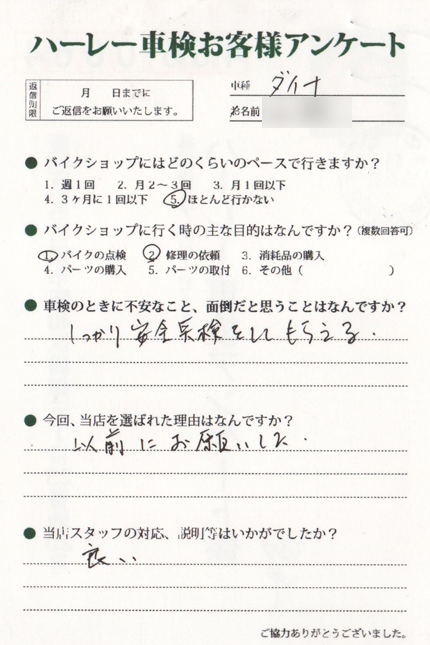 ハーレー車検お客様アンケート
返信期限
月　日までに
ご返信をお願いいたします。
車種 ダイナ
お名前
● バイクショップにはどのくらいのペースで行きますか？
1. 週1回　2. 月2〜3回　3. 月1回以下
4. 3ヶ月に1回以下　5. ほとんど行かない
● バイクショップに行く時の主な目的はなんですか？（複数回答可）
1. バイクの点検　2. 修理の依頼　3. 消耗品の購入
4. パーツの購入　5. パーツの取付　6. その他（　　　）
● 車検のときに不安なこと、面倒だと思うことはなんですか？
しっかり安全点検をしてもらえる.
● 今回、当店を選ばれた理由はなんですか？
以前にお願いした.
● 当店スタッフの対応、説明等はいかがでしたか？
良い
ご協力ありがとうございました。